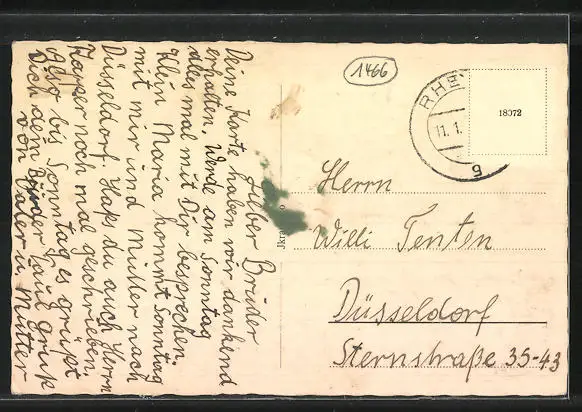 Lieber Bruder
Deine Karte haben wir dankend
erhalten. Werde am Sonntag
alles mal mit Dir besprechen.
Klein Maria kommt Sonntag
mit mir und Mutter nach
Düsseldorf. Haps du auch Herrn
Kayser noch mal geschrieben.
Also bis Sonntag es grüpt
Dich dein Bruder Paul Gruß
von Vater u, Mutter
1466
RHE
11. 1.
g
18072
Herrn
Willi Tenten
Düsseldorf
Sternstraße 35-43